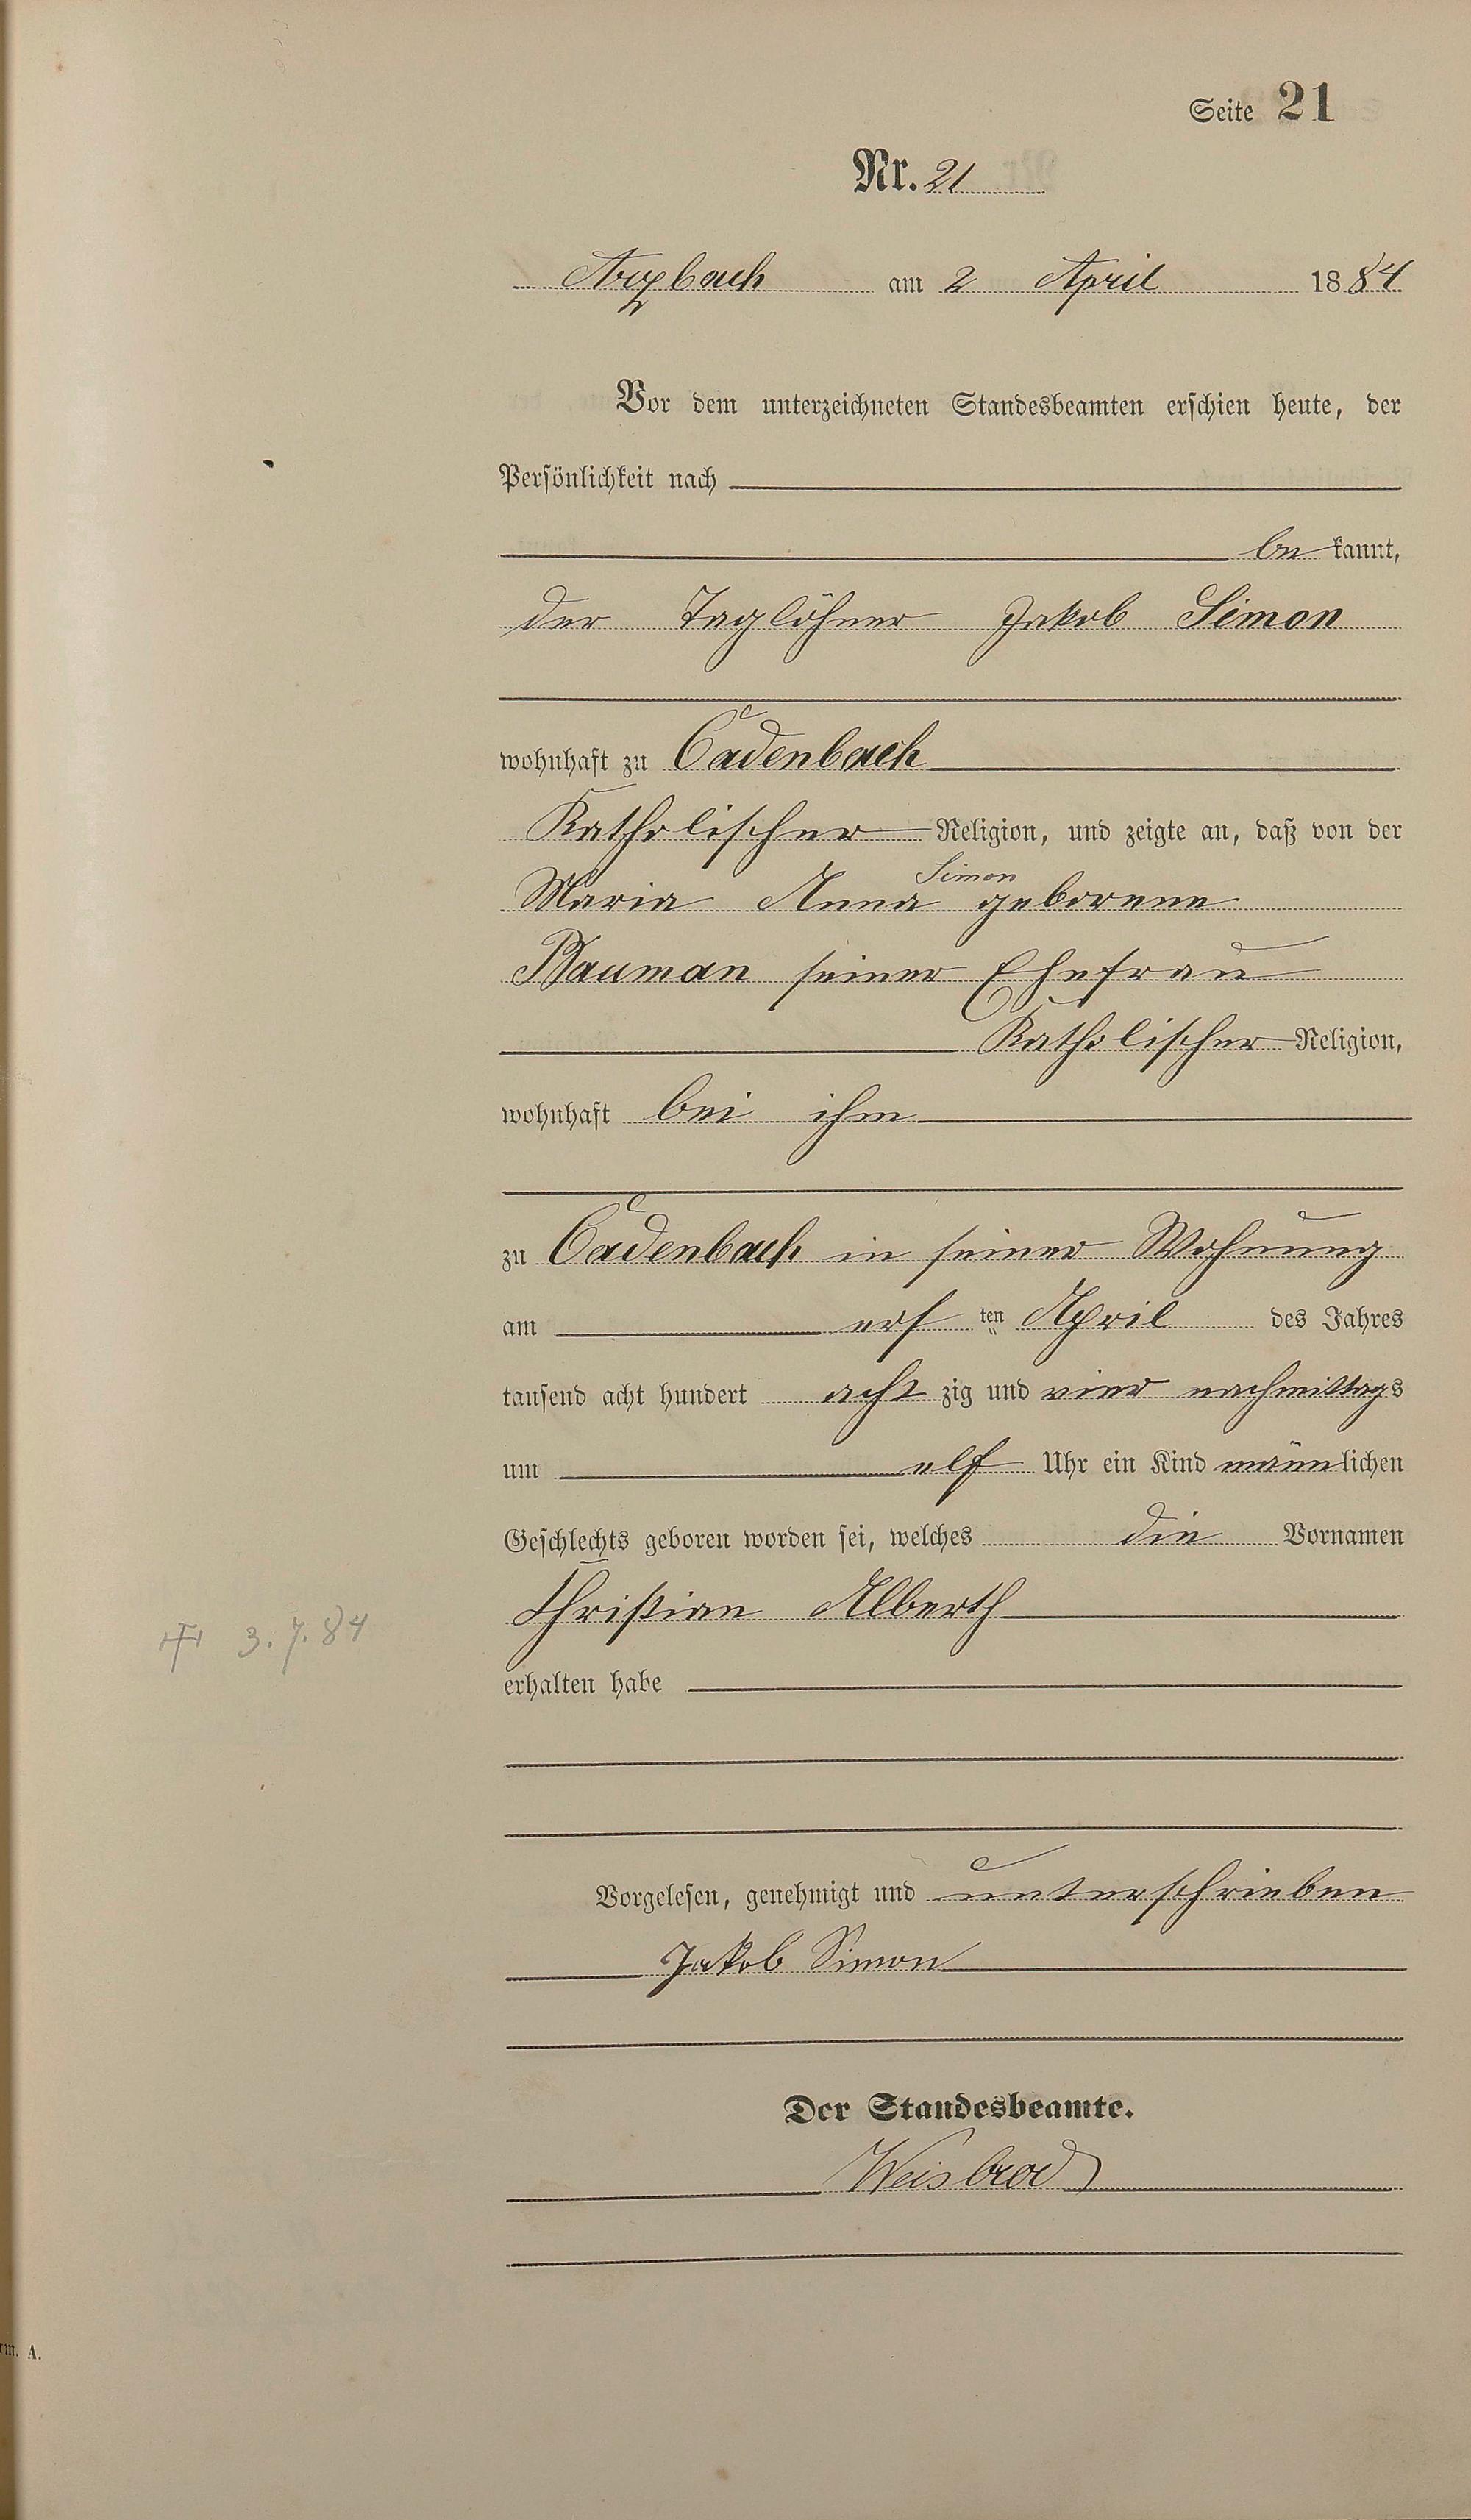 Seite 21
Nr. 21
Arzbach am 2 April 1884
Vor dem unterzeichneten Standesbeamten erschien heute, der
Persönlichkeit nach
be kannt,
der Taglöhner Jakob Simon
wohnhaft zu Cadenbach
Katholischer Religion, und zeigte an, daß von der
Simon
Maria Anna geborene
Bauman seiner Ehefrau
Katholischer Religion,
wohnhaft bei ihm
zu Cadenbach in seiner Wohnung
am ers ten April des Jahres
tausend acht hundert acht zig und vier nachmittags
um elf Uhr ein Kind männlichen
Geschlechts geboren worden sei, welches die Vornamen
Christian Alberth
3.7.84
erhalten habe
Vorgelesen, genehmigt und unterschrieben
Jakob Simon
Der Standesbeamte.
Weisbrod
m. A.